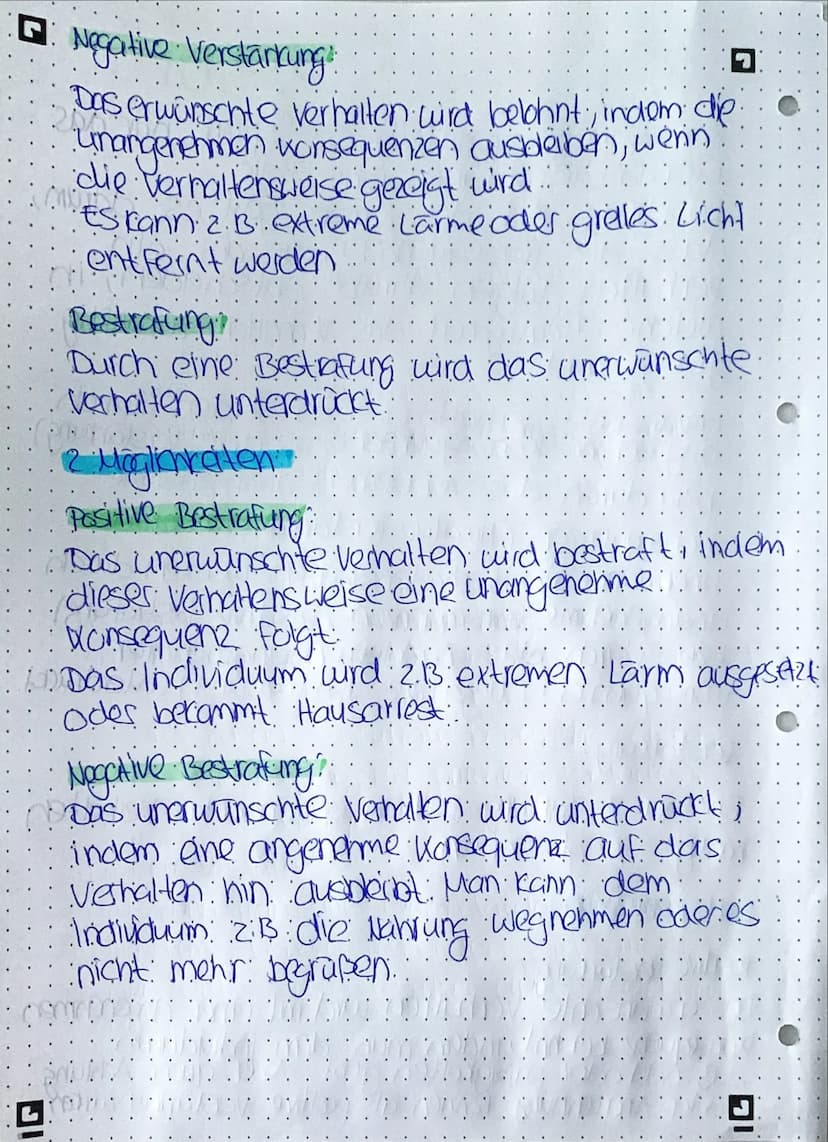 Negative Verstärkung:
Das erwünschte Verhalten wird belohnt, indem die
unangenehmen Konsequenzen ausbleiben, wenn
die Verhaltensweise gezeigt wird.
Es kann z.B. extreme Lärme oder grelles Licht
entfernt werden
Bestrafung:
Durch eine Bestrafung wird das unerwünschte
Verhalten unterdrückt.
2 Möglichkeiten
Positive Bestrafung:
Das unerwünschte Verhalten wird bestraft, indem
dieser Verhaltensweise eine unangenehme
Konsequenz folgt.
Das Individuum wird z.B extremen Lärm ausgesetzt
oder bekommt Hausarrest.
Negative Bestrafung:
Das unerwünschte Verhalten wird unterdrückt,
indem eine angenehme Konsequenz auf das
Verhalten hin ausbleibt. Man kann dem
Individuum z.B. die Nahrung wegnehmen oder es
nicht mehr begrüßen.